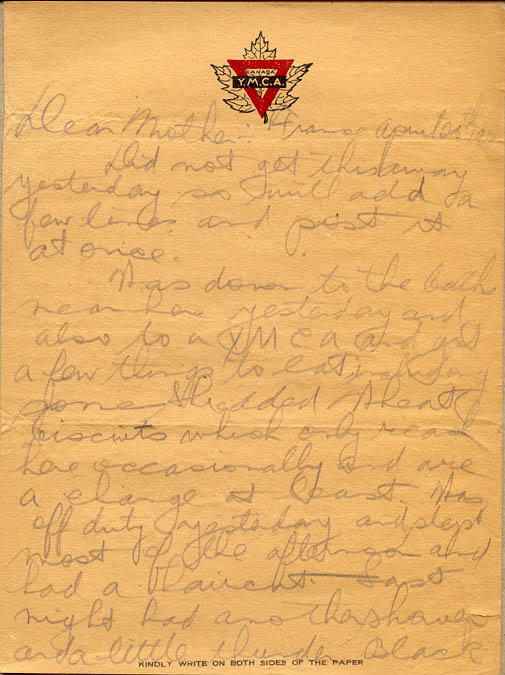 CANADA
Y.M.C.A.
Dear Mother: France April 20th
Did not get this away
yesterday so will add a
few lines and post it
at once.
Was down to the bath
near here yesterday and
also to a YMCA and got
a few things to eat including
some Shredded Wheat
biscuits which only reach
here occasionally and are
a change at least. Was
off duty yesterday and slept
most of the afternoon and
had a haircut. Last
night had another shower
and a little thunder. Black
KINDLY WRITE ON BOTH SIDES OF THE PAPER